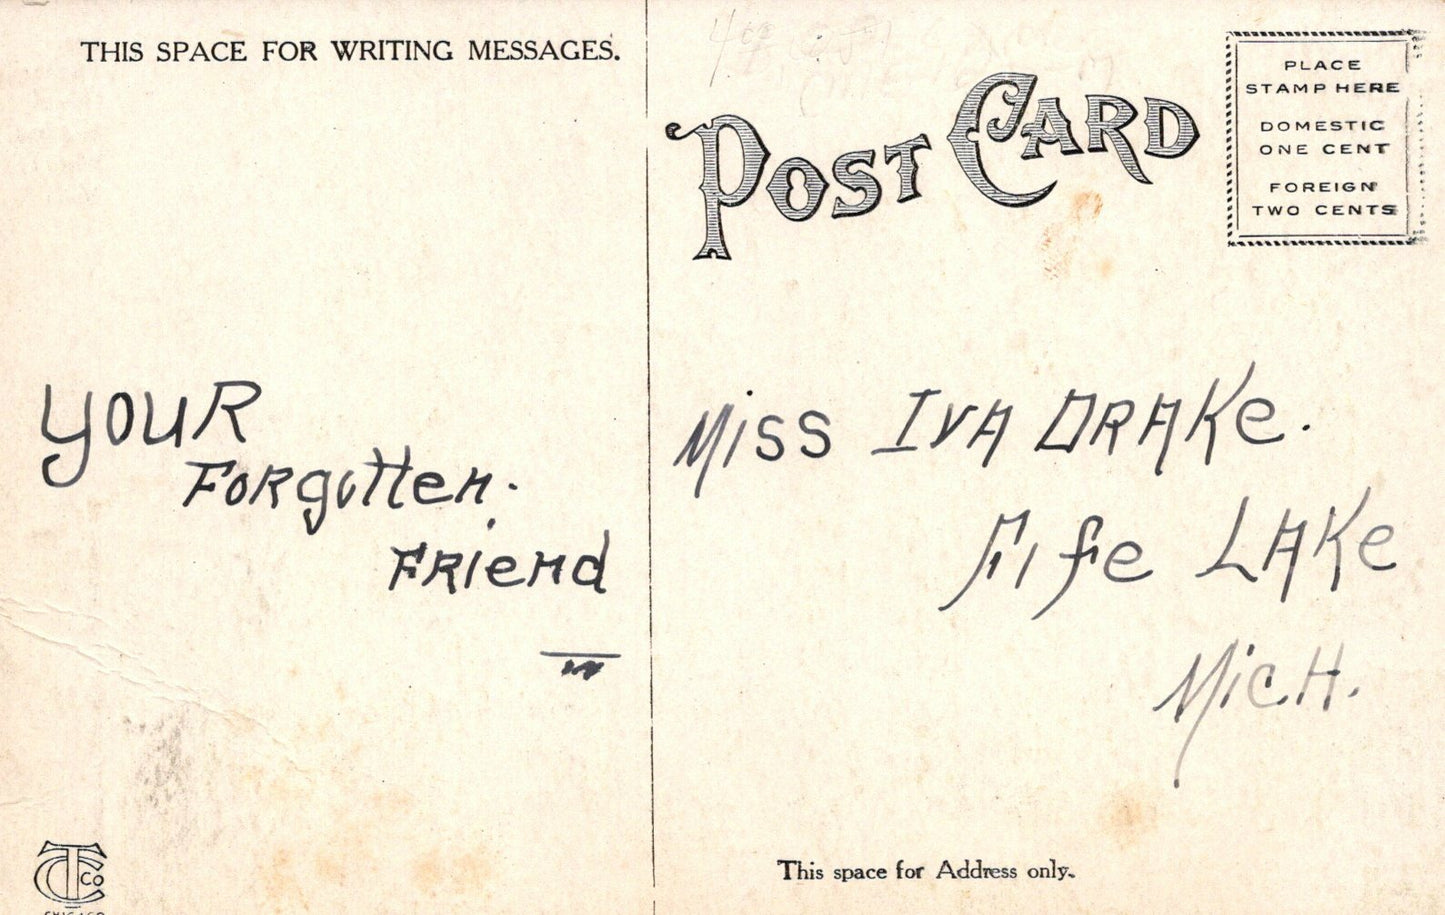 THIS SPACE FOR WRITING MESSAGES.
YOUR
FORgotten.
FRIEND
POST CARD
PLACE
STAMP HERE
DOMESTIC
ONE CENT
FOREIGN
TWO CENTS
Miss IVA DRAKe.
Fife LAKe
Mich.
This space for Address only.
CTCo
CHICAGO